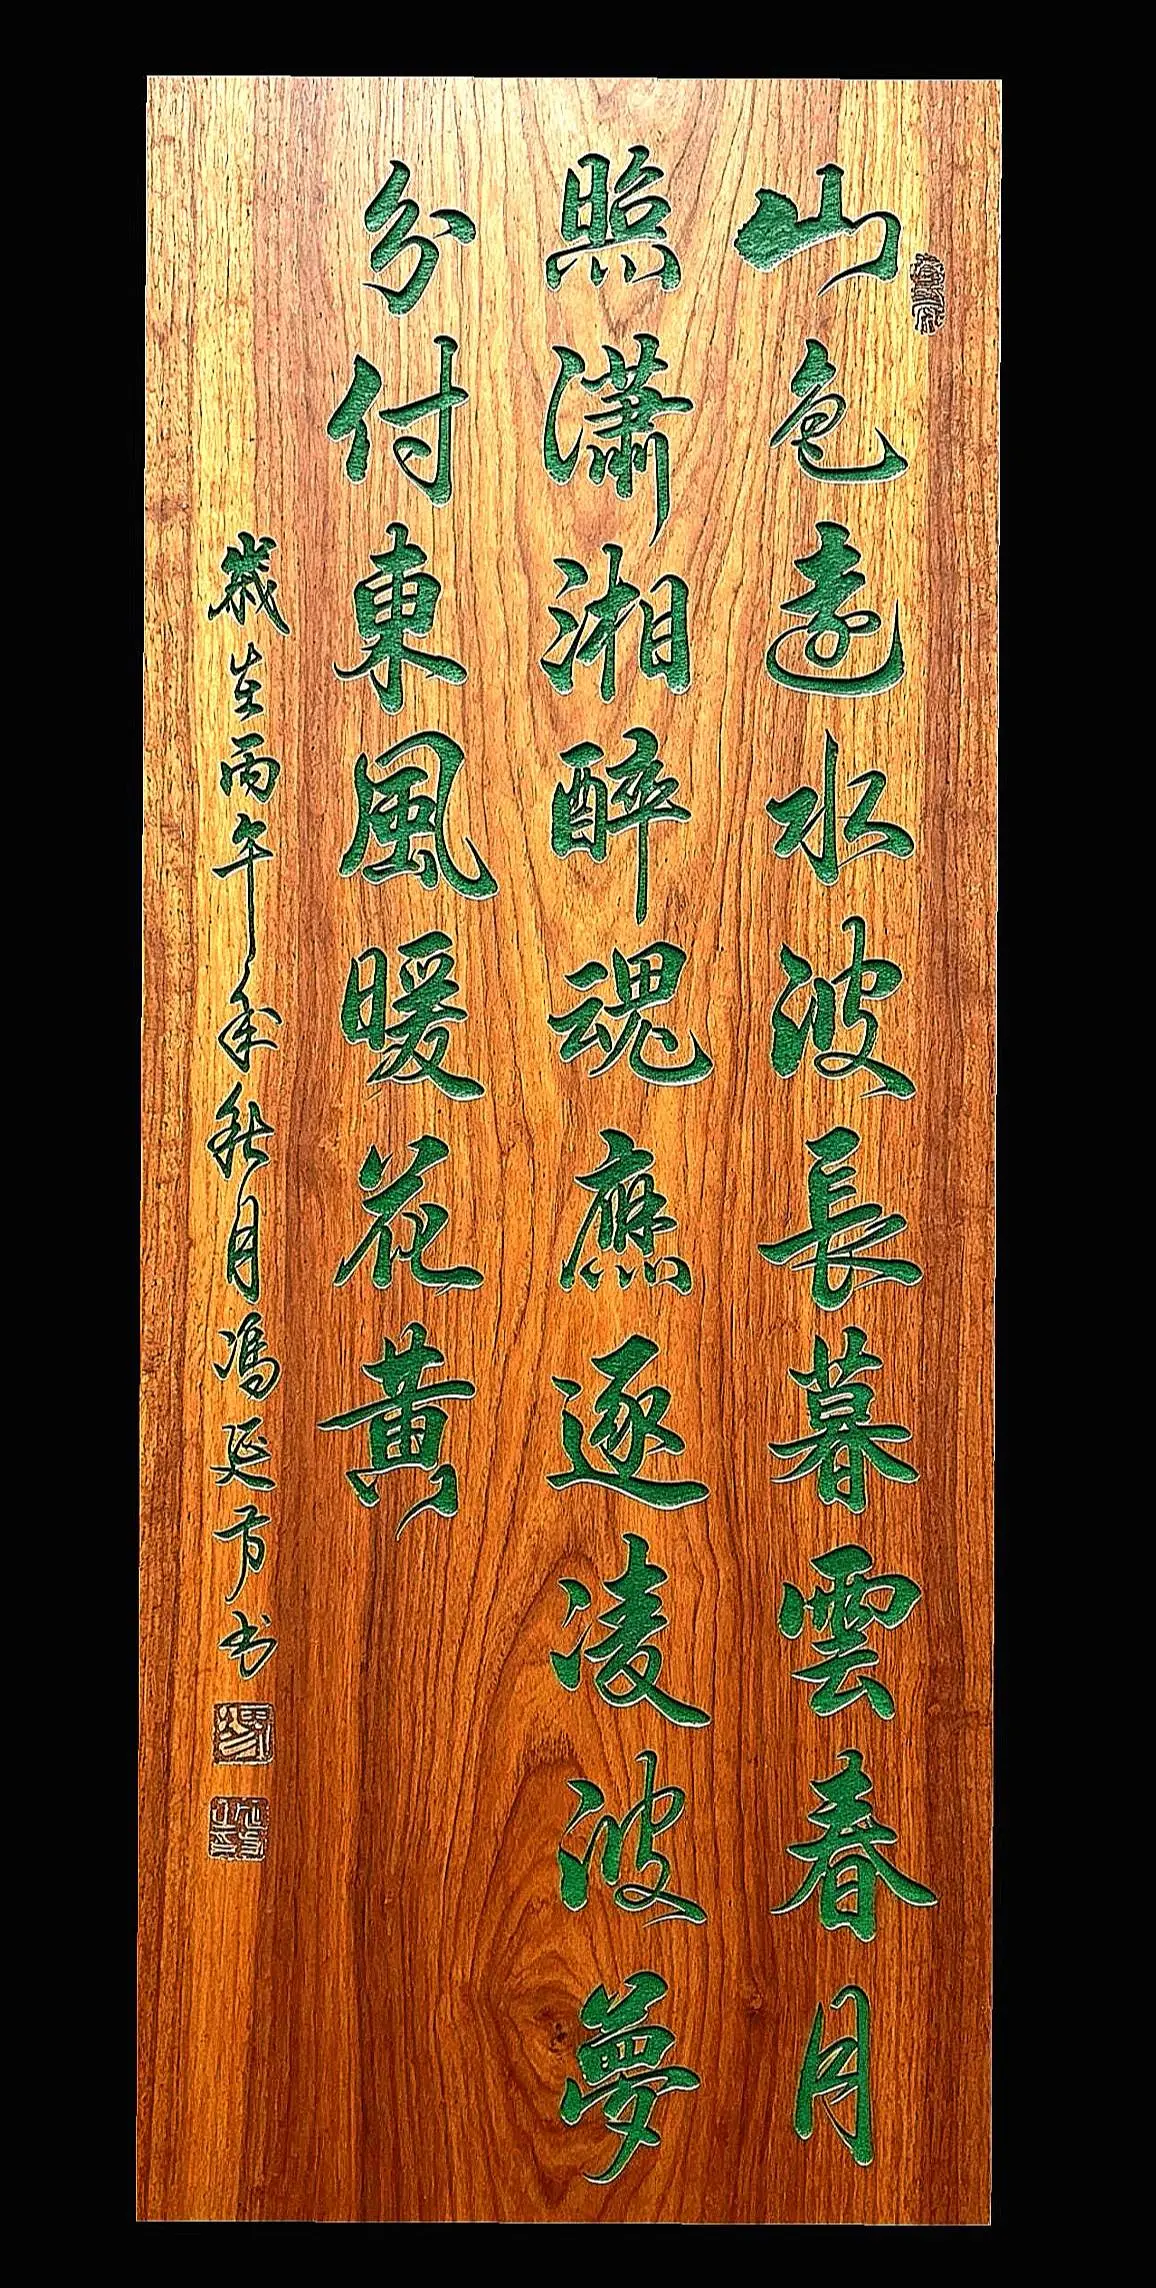 山色遠水波長暮雲春月
照瀟湘醉魂應逐凌波夢
分付東風暖花黃
歲在丙午年秋月馮延方书